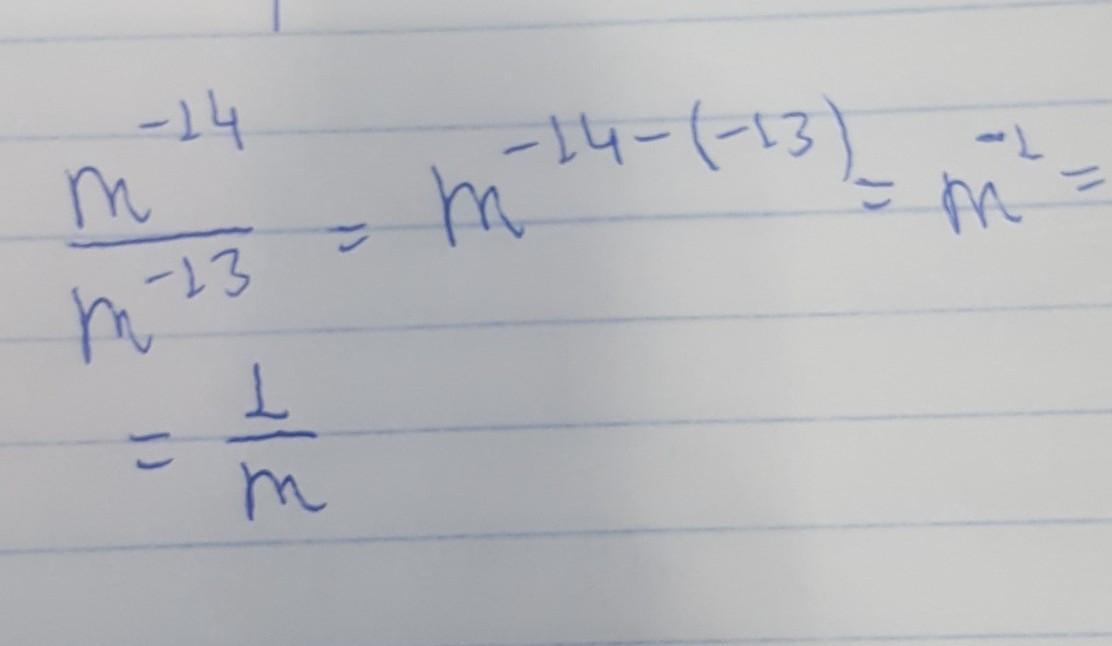 m^{-14}/m^{-13} = m^{-14-(-13)} = m^{-1} =
= 1/m